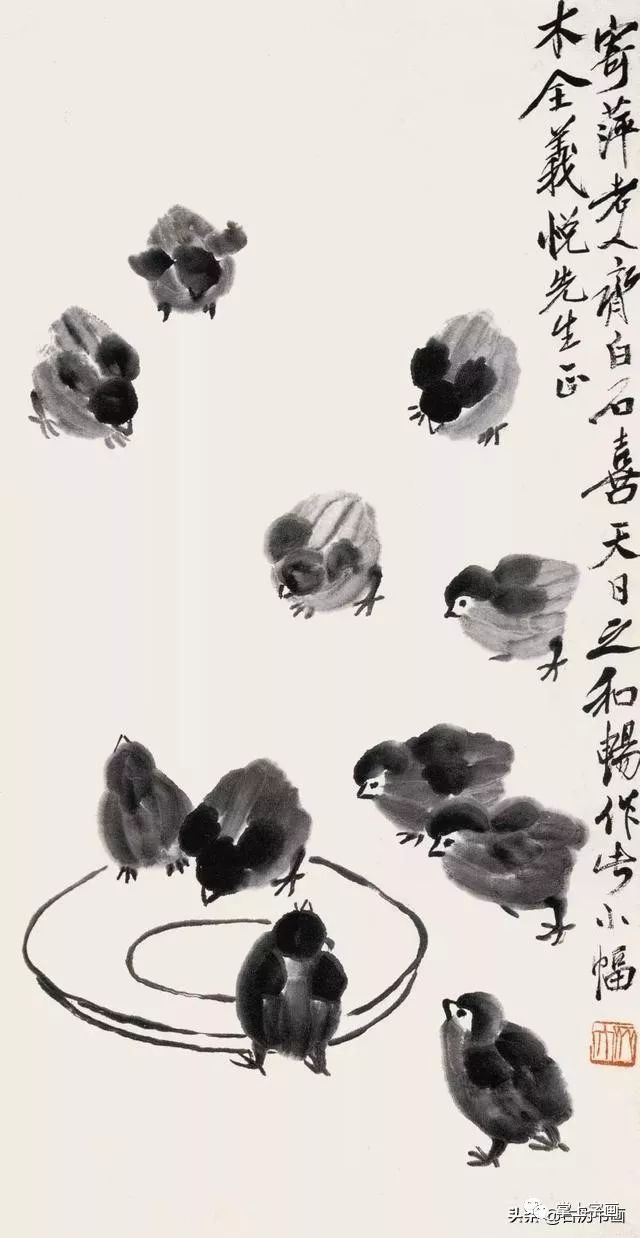 寄萍老人齊白石喜天日之和暢作此小幅
木全義悅先生正
掌上字画
头条